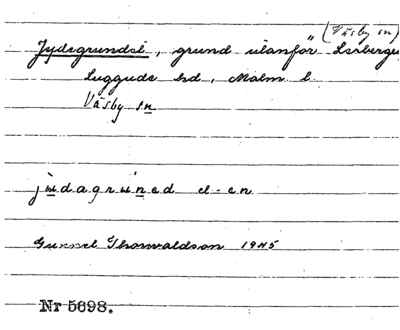 (Väsby sn)
Jydegrundet, grund utanför Lerberget,
Luggude hd, Malm l.
Väsby sn
judagruned el-en
Gunnel Thorvaldson 1945
Nr 5698.